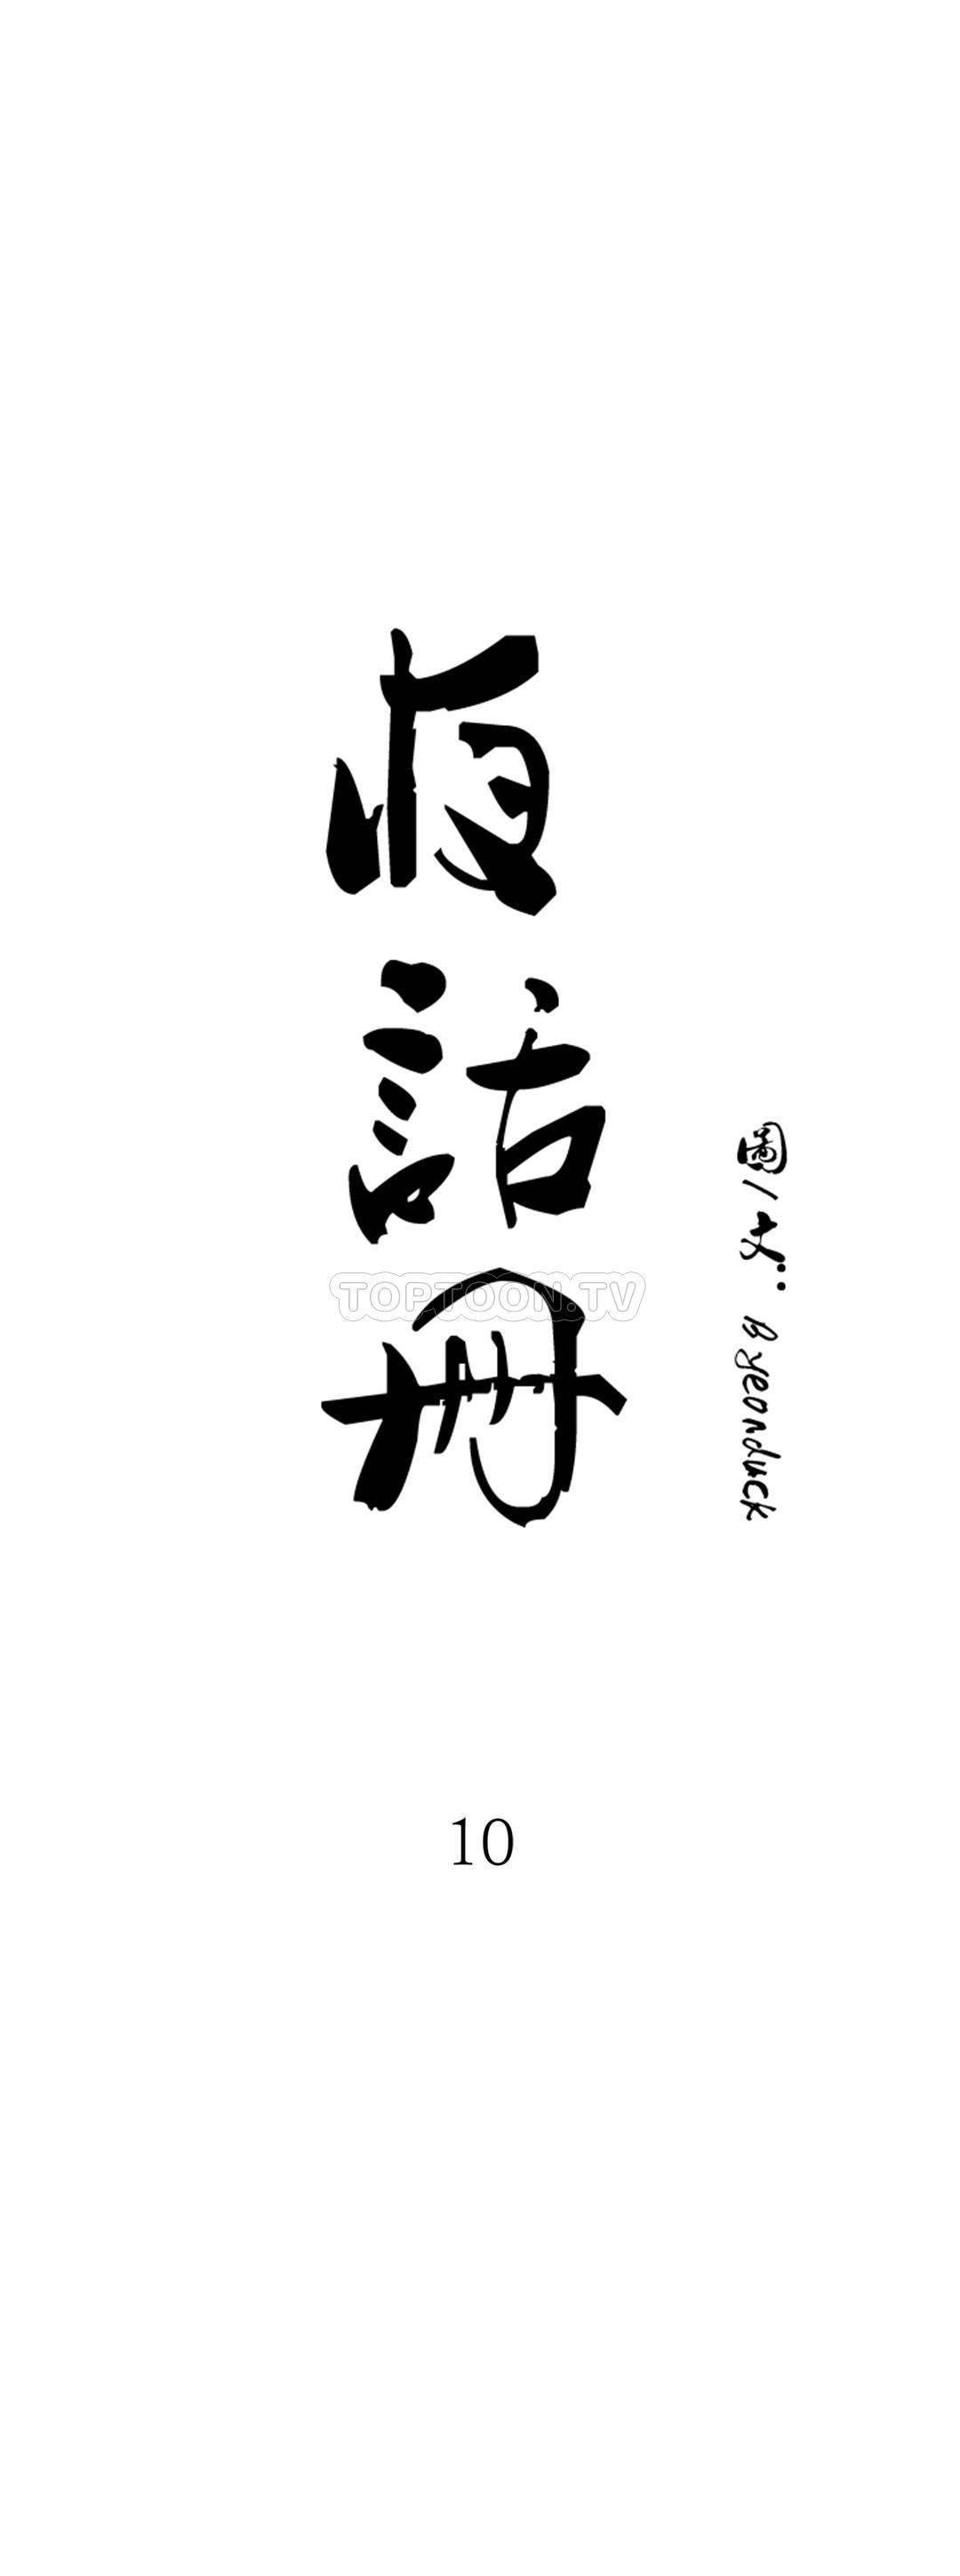 夜話冊
圖/文: Byeonduck
TOPTOON.TV
10